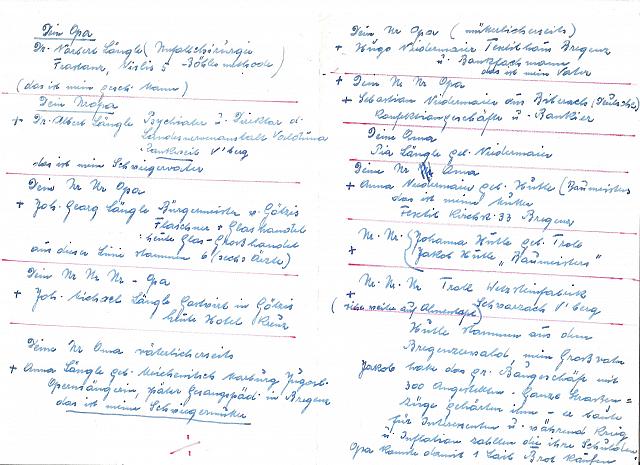 Dein Opa
Dr. Norbert Längle (Unfallchirurgie
Frastanz, 5 - Böhlermethode)
(das ist mein gesch. Mann)
Dein Uropa
+ Dr. Albert Längle Psychiater u. Direktor d.
Landesirrenanstalt Valduna
Rankweil V'berg
das ist mein Schwiegervater
Dein Ur Ur Opa
+ Joh. Georg Längle Bürgermeister v. Götzis
Flaschner + Glashandel
heute Glas-Großhandel
aus dieser Linie stammen 6 (sechs Ärzte)
Dein Ur Ur Ur - Opa
+ Joh. Michael Längle Gastwirt in Götzis
heute Hotel Kreuz
Deine Ur Oma väterlicherseits
+ Anna Längle geb. Marburg Jugosl.
Opernsängerin, später Gesangspäd. in Bregenz
das ist meine Schwiegermutter
Dein Ur Opa (mütterlicherseits)
+ Hugo Neidermaier Textilhaus Bregenz
u. Bankfachmann
das ist mein Vater
+ Dein Ur Ur Opa
+ Sebastian Neidermaier aus Biberach (Deutschl)
Konfektionsgeschäfte u. Bankier
Deine Oma
Pia Längle geb. Neidermaier
Deine Ur Oma
+ Anna Neidermaier geb. Hutle (Baumeisters
das ist meine Mutter
Textil Kirchstr. 33 Bregenz
Ur. Ur. (Johanna Hutle geb.
+ (Jakob Hutle „Baumeisters"
+ Ur. Ur. Ur Wetzsteinfabrik
(siehe weiter auf Ahnentafel) Schwarzach V'berg
Hutle stammen aus dem
Bregenzerwald, mein Großvater
Jakob hatte das gr. Baugeschäft mit
300 Angestellten. Ganze Straßen=
züge gehörten ihm - er baute
für Interessenten u. während Krieg
u. Inflation zahlten die ihre Schulden,
Opa konnte damit 1 Laib Brot kaufen